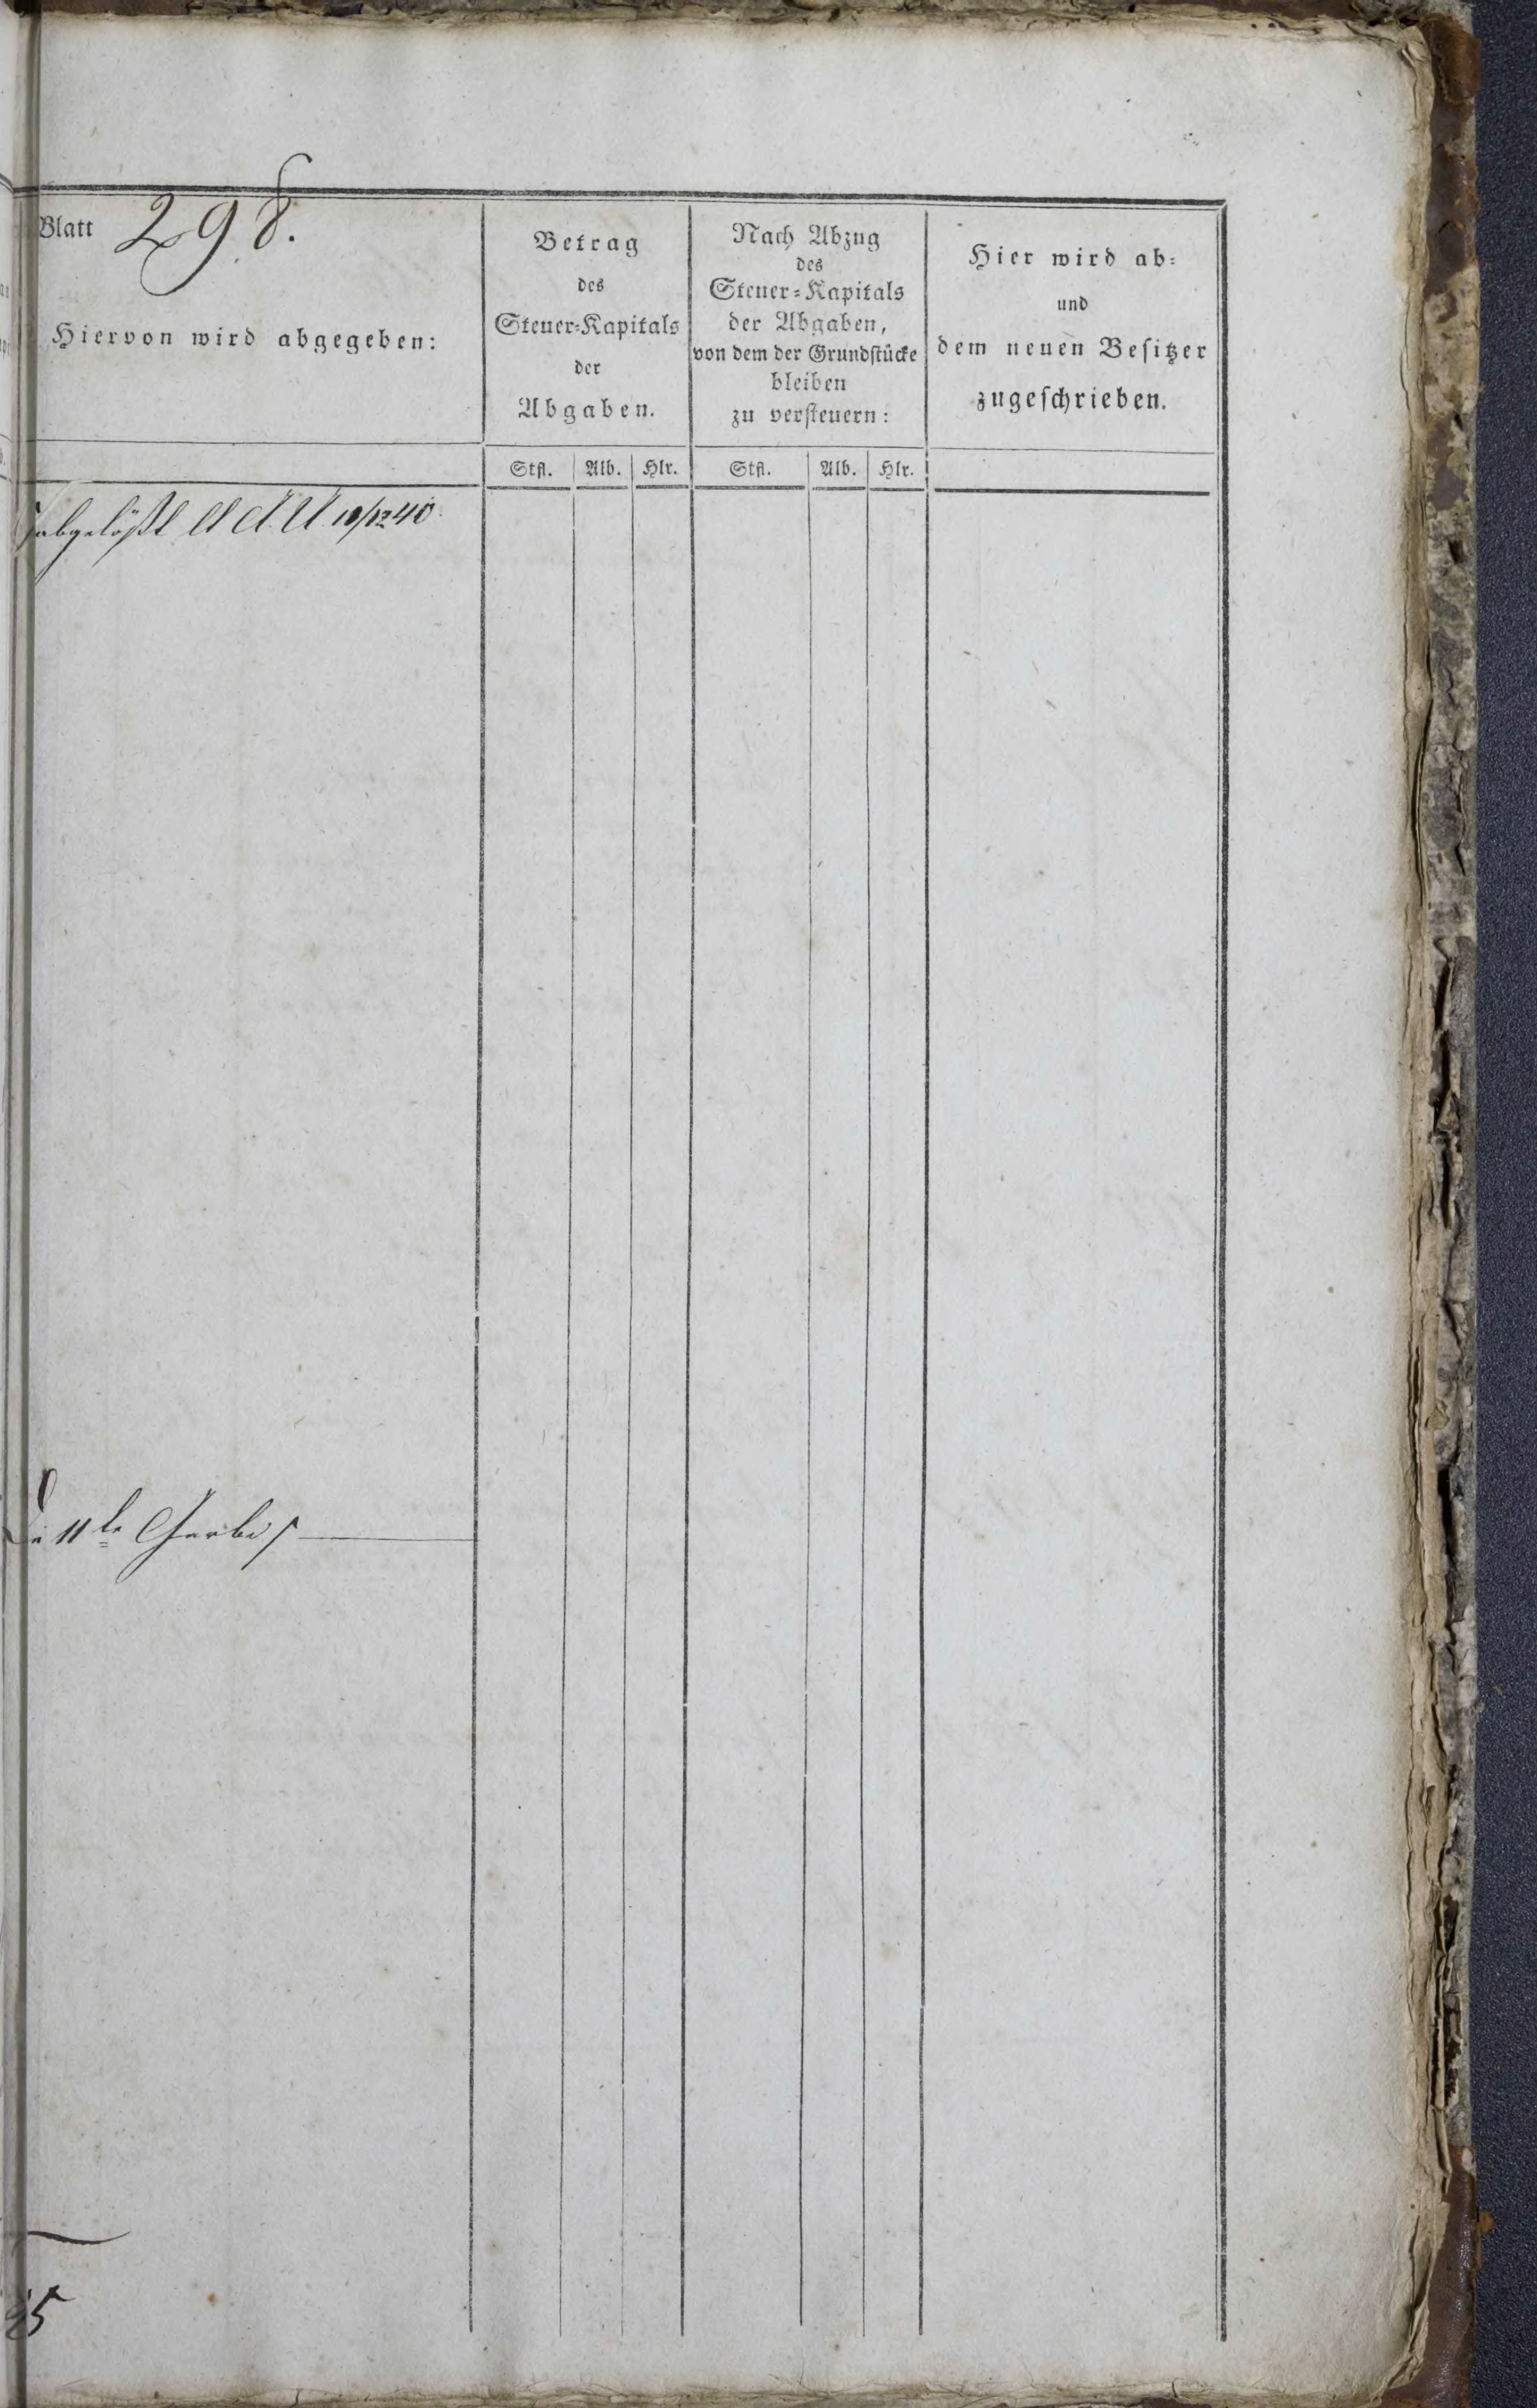 Blatt 298.
Hiervon wird abgegeben:
Betrag
des
Steuer-Kapitals
der
Abgaben.
Nach Abzug
des
Steuer-Kapitals
der Abgaben,
von dem der Grundstücke
bleiben
zu versteuern:
Hier wird ab-
und
dem neuen Besitzer
zugeschrieben.
Stfl. Alb. Hlr. Stfl. Alb. Hlr.
abgelößt 10/12 40
11te Garbe